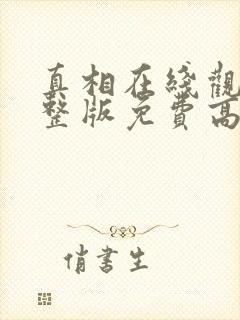 真相在綫觀
整版免費高
俏書生